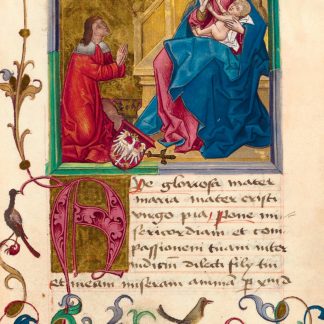 Ave gloriosa mater
maria mater cristi
virgo pia pone mi
sericordiam et com
passionem tuam inter
iudicium dilecti filij tui
et meam miseram anima